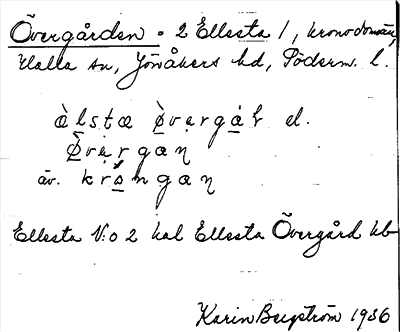 Övergården = 2 Ellesta 1, kronodomän,
Halla sn, Jönåkers hd, Söderm. l.
èlstæ ø̀værgá̱ɽ el.
ø̀værgan
äv. króngan
Ellesta N:o 2 kal Ellesta Övergård kb
Karin Bergström 1936